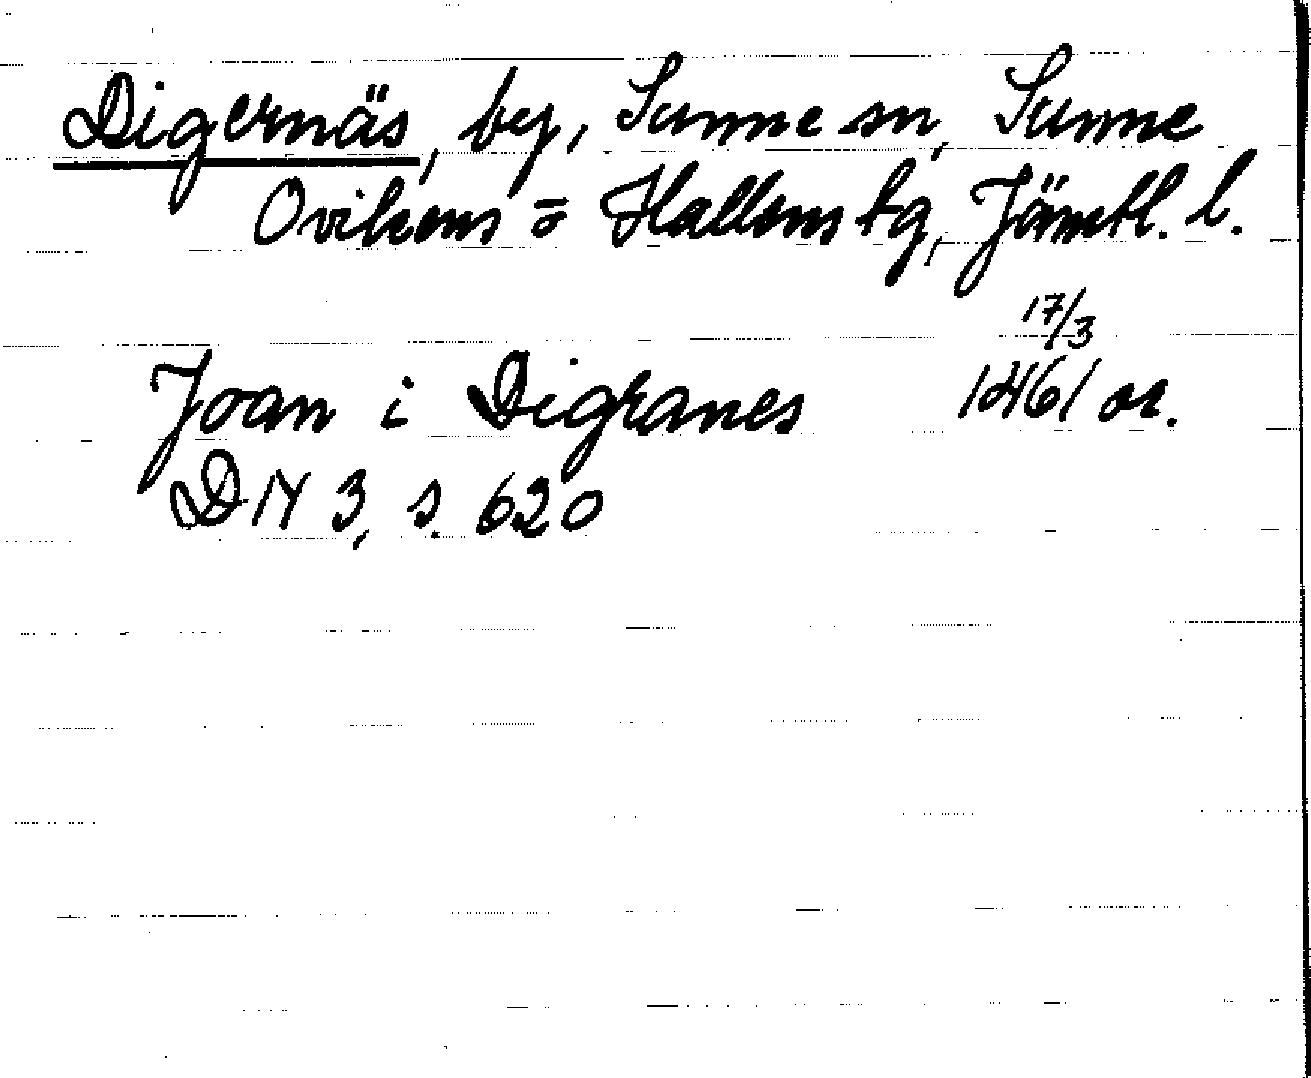 Digernäs, by, Sunne sn, Sunne
Ovikens = Hallens tg, Jämtl. l.
17/3
Joan i Digranes 1461 or.
DN 3, s. 620